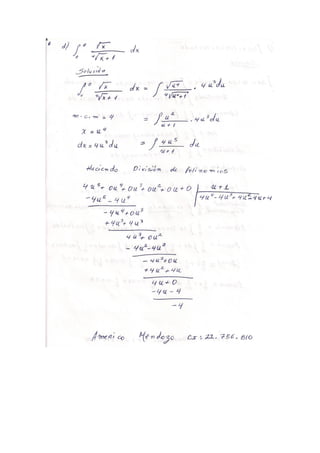 d) ∫ √x / ⁴√x + 1 dx
Solución
∫ √x / ⁴√x + 1 dx = ∫ √u⁴ / ⁴√u⁴ + 1 . 4u³du
m.c.m = 4 = ∫ u² / u+1 . 4u³du
x = u⁴
dx = 4u³du = ∫ 4u⁵ / u+1 du
Haciendo División de Polinomios
4u⁵+ 0u⁴+ 0u³+ 0u²+ 0u + 0 | u + 1
-4u⁵ - 4u⁴ 4u⁴-4u³+4u²-4u+4
-4u⁴+0u³
+4u⁴+4u³
4u³+ 0u²
- 4u³-4u²
-4u²+0u
+4u²+4u
4u+0
-4u-4
-4
Americo Mendoza CI: 22.756.010